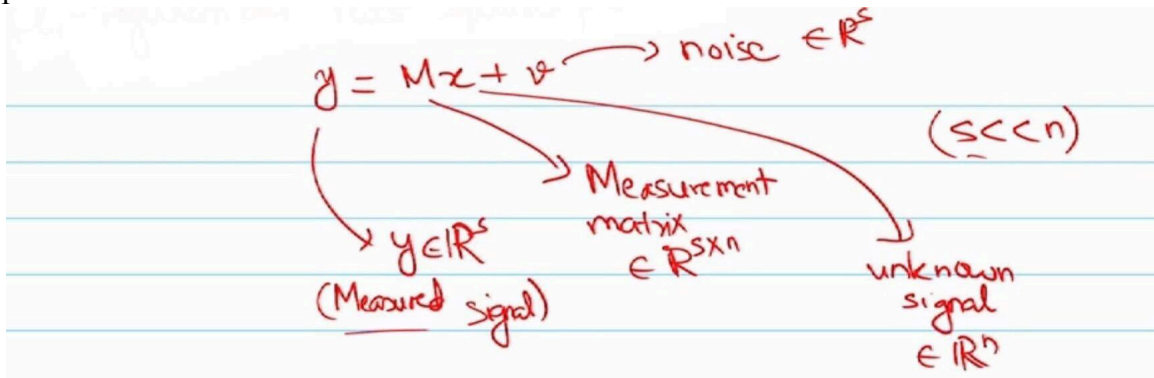 y = Mx + v → noise ∈ ℝˢ
(s<<n)
Measurement
matrix
∈ ℝˢˣⁿ
y∈ℝˢ
(Measured signal)
unknown
signal
∈ ℝⁿ